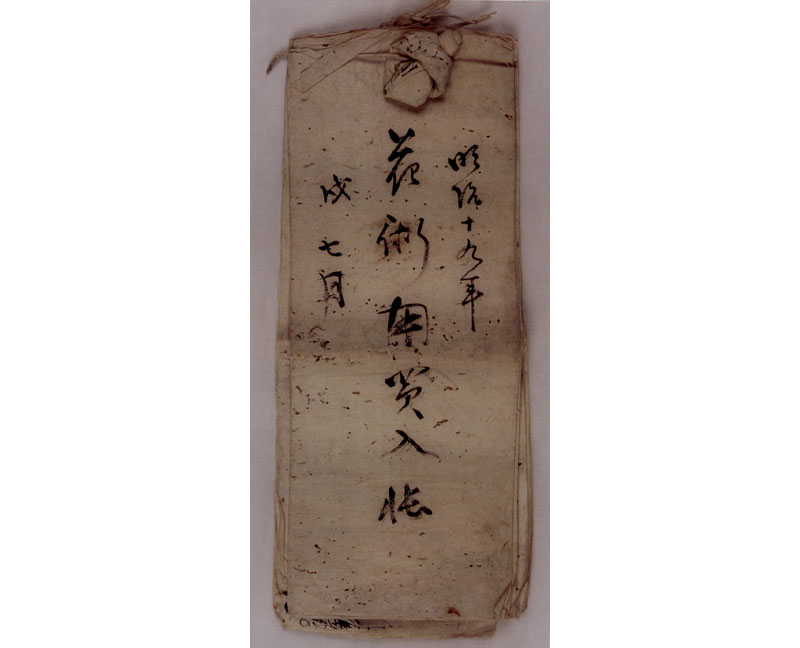 明治十九年
花術用買入帳
戌七月